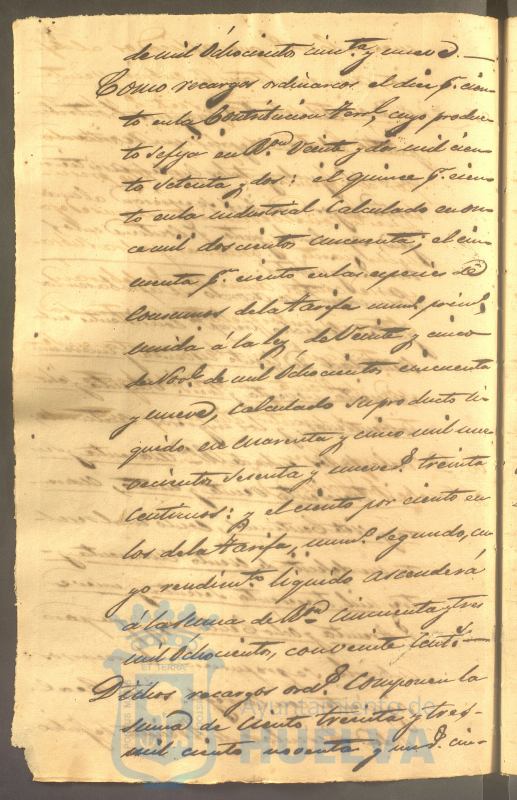 de mil Ochociento cinc.ta y nueve.—
Como recargos ordinarios el diez p.r cien-
to en la Contribucion terr.l, cuyo produc-
to se fija en R.s von Veinte y dos mil cien-
to setenta y dos: el quince p.r cien-
to en la industrial calculado en on-
ce mil doscientos cincuenta; el cin-
cuenta p.r ciento en las especies de
Consumos de la tarifa num.o prim.o
unida á la ley de Veinte y cinco
de Nov.e de mil Ochocientos cincuenta
y nueve, calculado su producto li-
quido en cuarenta y cinco mil nue-
vecientos sesenta y nueve r.s treinta
centimos: y el ciento por ciento en
los de la tarifa, num.o segundo, cu-
yo rendim.to liquido ascenderá
á la suma de R.s von cincuenta y tres
mil Ochociento, con veinte cent.s—
Dichos recargos ord.s componen la
suma de ciento treinta y tres-
mil ciento noventa y un r.s cin-
Ayuntamiento de
HUELVA